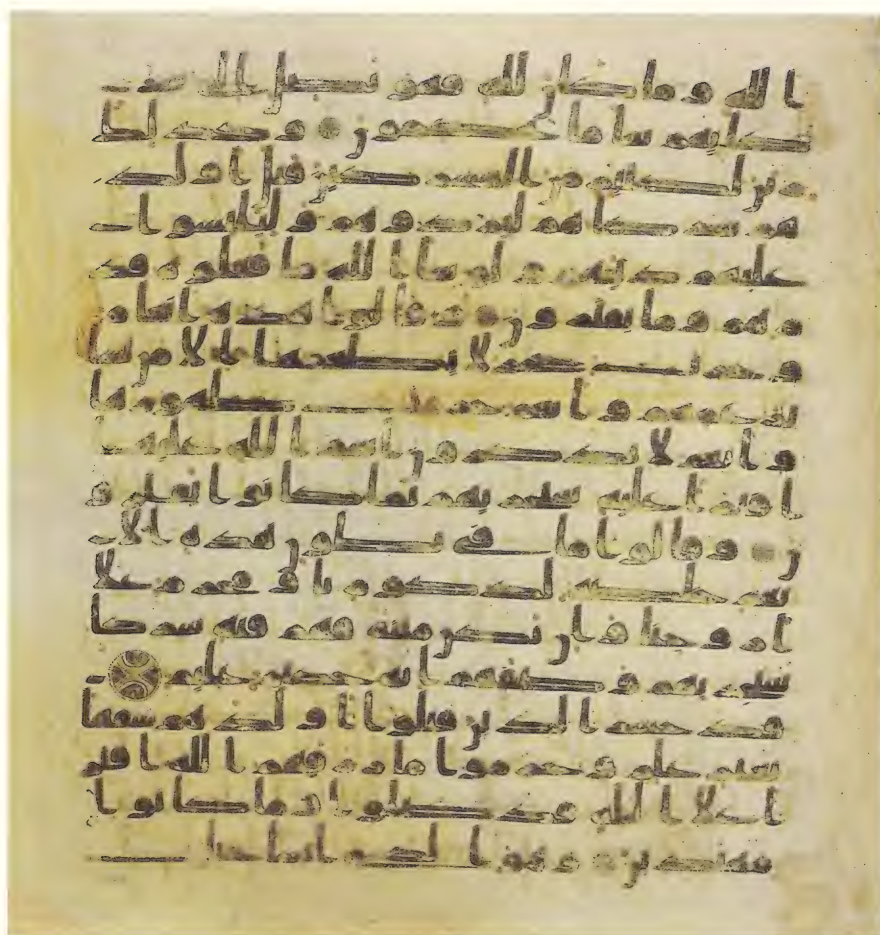 ا لله وما كان لله فهو يصل الى شر
كايهم سا ما يحكمون وكذلك ز
ين لكثير من المشركين قتل اولد
هم شركاوهم ليردوهم وليلبسوا
عليهم دينهم ولو شا الله ما فعلوه فذ
رهم وما يفترون وقالوا هذه انعم
وحرث حجر لا يطعمها الا من نشا
بزعمهم وانعم حرمت ظهورها
وانعم لا يذكرون اسم الله عليها
افترا عليه سيجزيهم بما كانوا يفترو
ن وقالوا ما في بطون هذه الا
نعم خالصة لذكورنا ومحرم على
ازوجنا وان يكن ميتة فهم فيه شركا
سيجزيهم وصفهم انه حكيم عليم
قد خسر الذين قتلوا اولدهم سفها
بغير علم وحرموا ما رزقهم الله افتر
ا على الله قد ضلوا وما كانوا
مهتدين وهو الذي انشا جنت